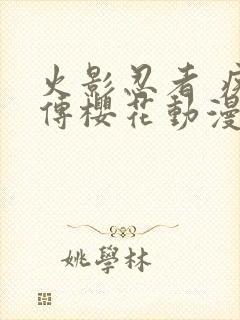 火影忍者 疾
傳櫻花動漫
姚學林